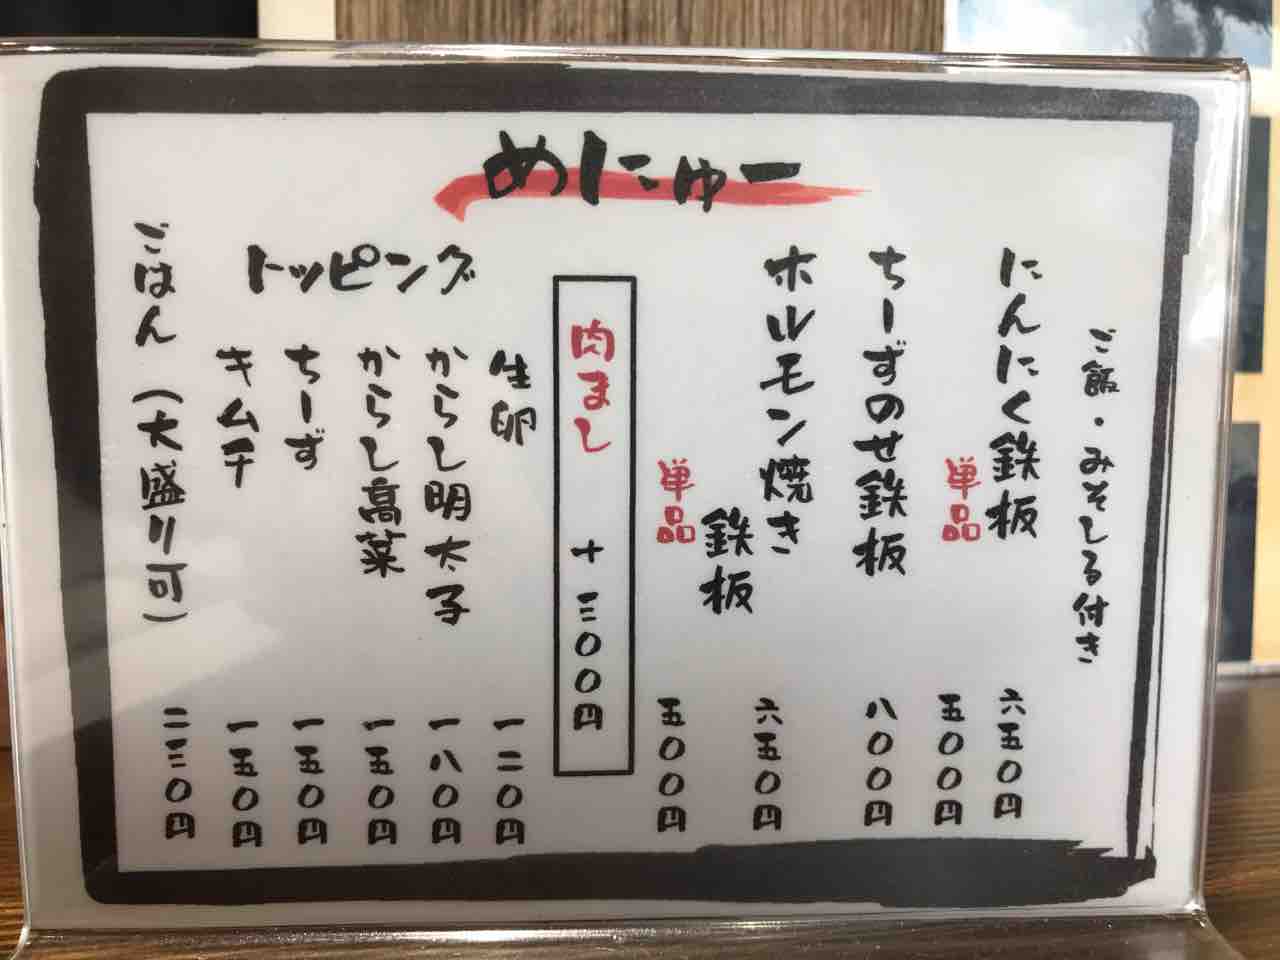 めにゅー
ご飯・みそしる付き
にんにく鉄板 六五〇円
単品 五〇〇円
ちーずのせ鉄板 八〇〇円
ホルモン焼き
鉄板 六五〇円
単品 五〇〇円
肉まし +三〇〇円
トッピング
生卵 一二〇円
からし明太子 一八〇円
からし高菜 一五〇円
ちーず 一五〇円
キムチ 一五〇円
ごはん(大盛り可) 二三〇円